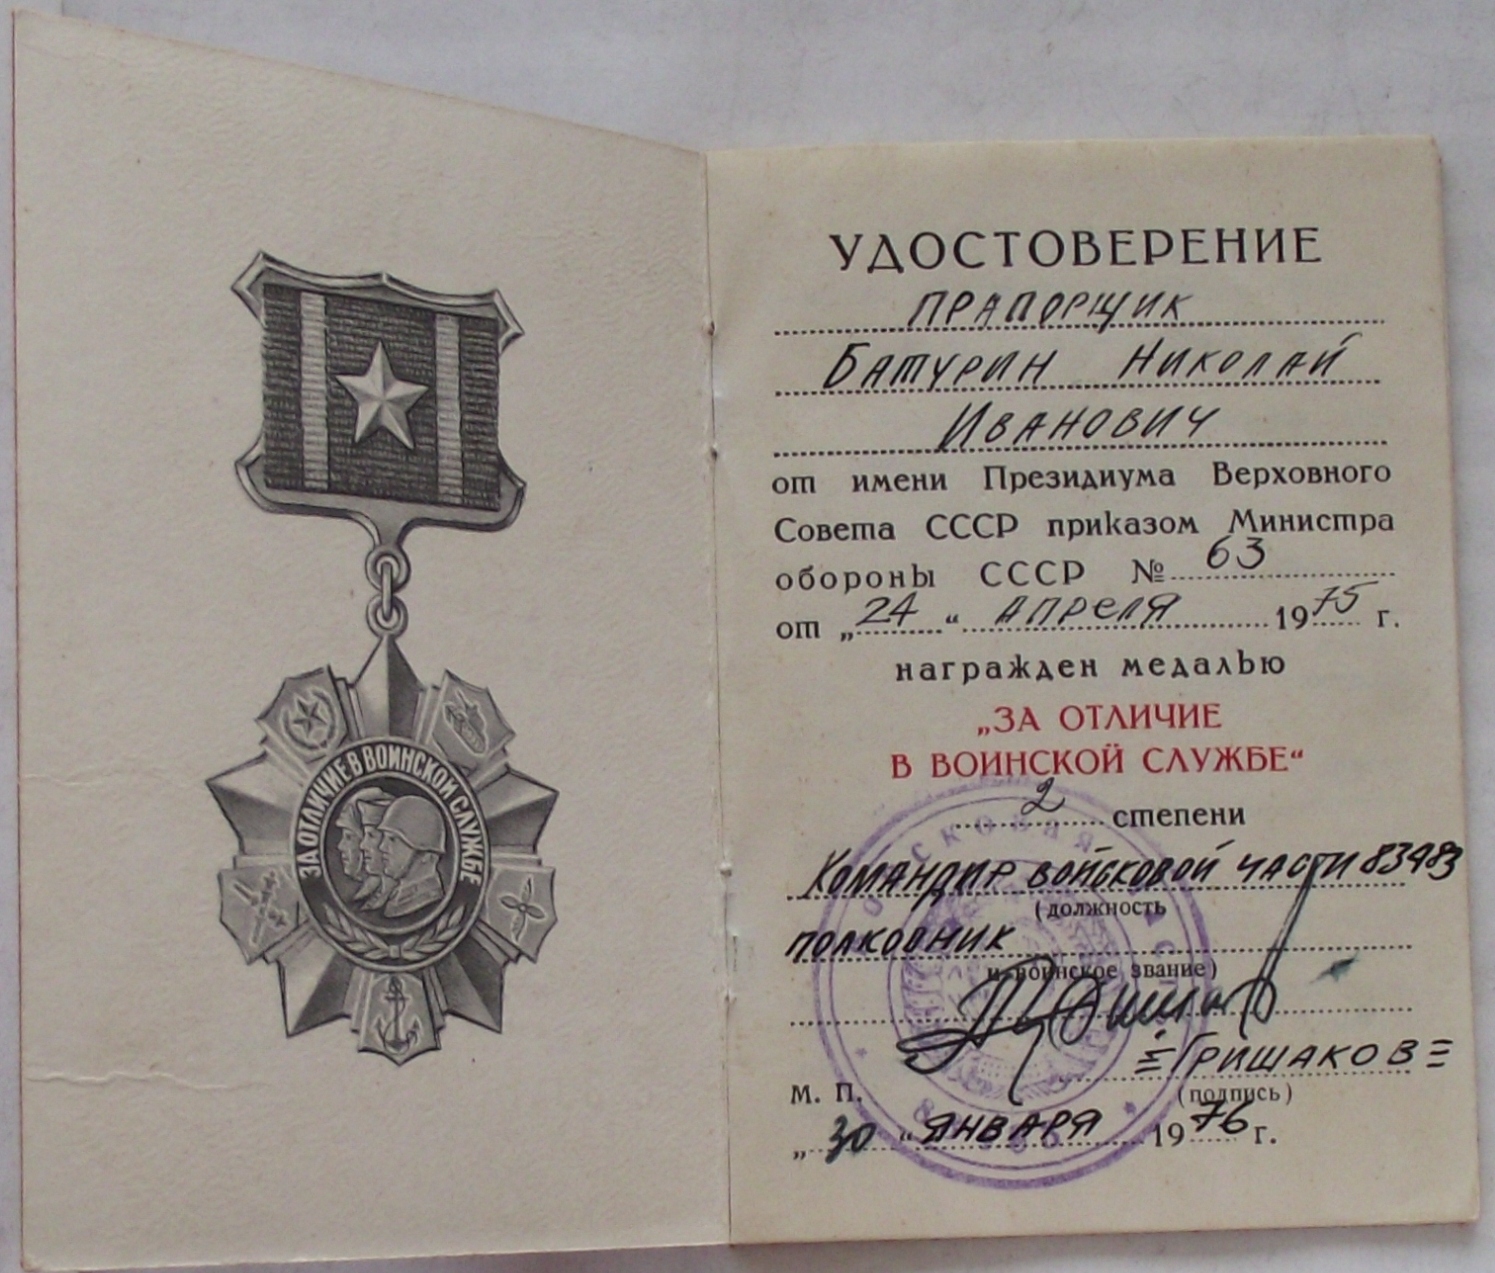 ЗА ОТЛИЧИЕ В ВОИНСКОЙ СЛУЖБЕ
УДОСТОВЕРЕНИЕ
ПРАПОРЩИК
БАТУРИН НИКОЛАЙ
ИВАНОВИЧ
от имени Президиума Верховного
Совета СССР приказом Министра
обороны СССР № 63
от „24“ АПРЕЛЯ 1975 г.
награжден медалью
„ЗА ОТЛИЧИЕ
В ВОИНСКОЙ СЛУЖБЕ“
2 степени
КОМАНДИР ВОЙСКОВОЙ ЧАСТИ 83483
(должность
ПОЛКОВНИК
и воинское звание)
=ГРИШАКОВ=
М. П. (подпись)
„30“ ЯНВАРЯ 1976 г.